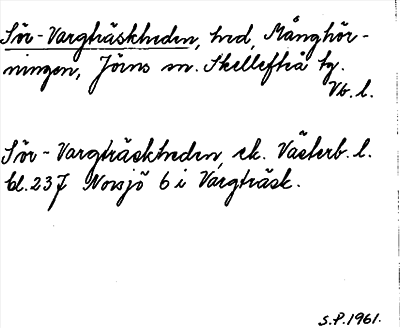 Sör-Vargträskheden, hed, Månghör-
ningen, Jörns sn. Skellefteå tg.
Vb. l.
Sör-Vargträskheden, ek. Västerb. l.
bl. 23 J Norsjö 6 i Vargträsk.
S.P. 1961.